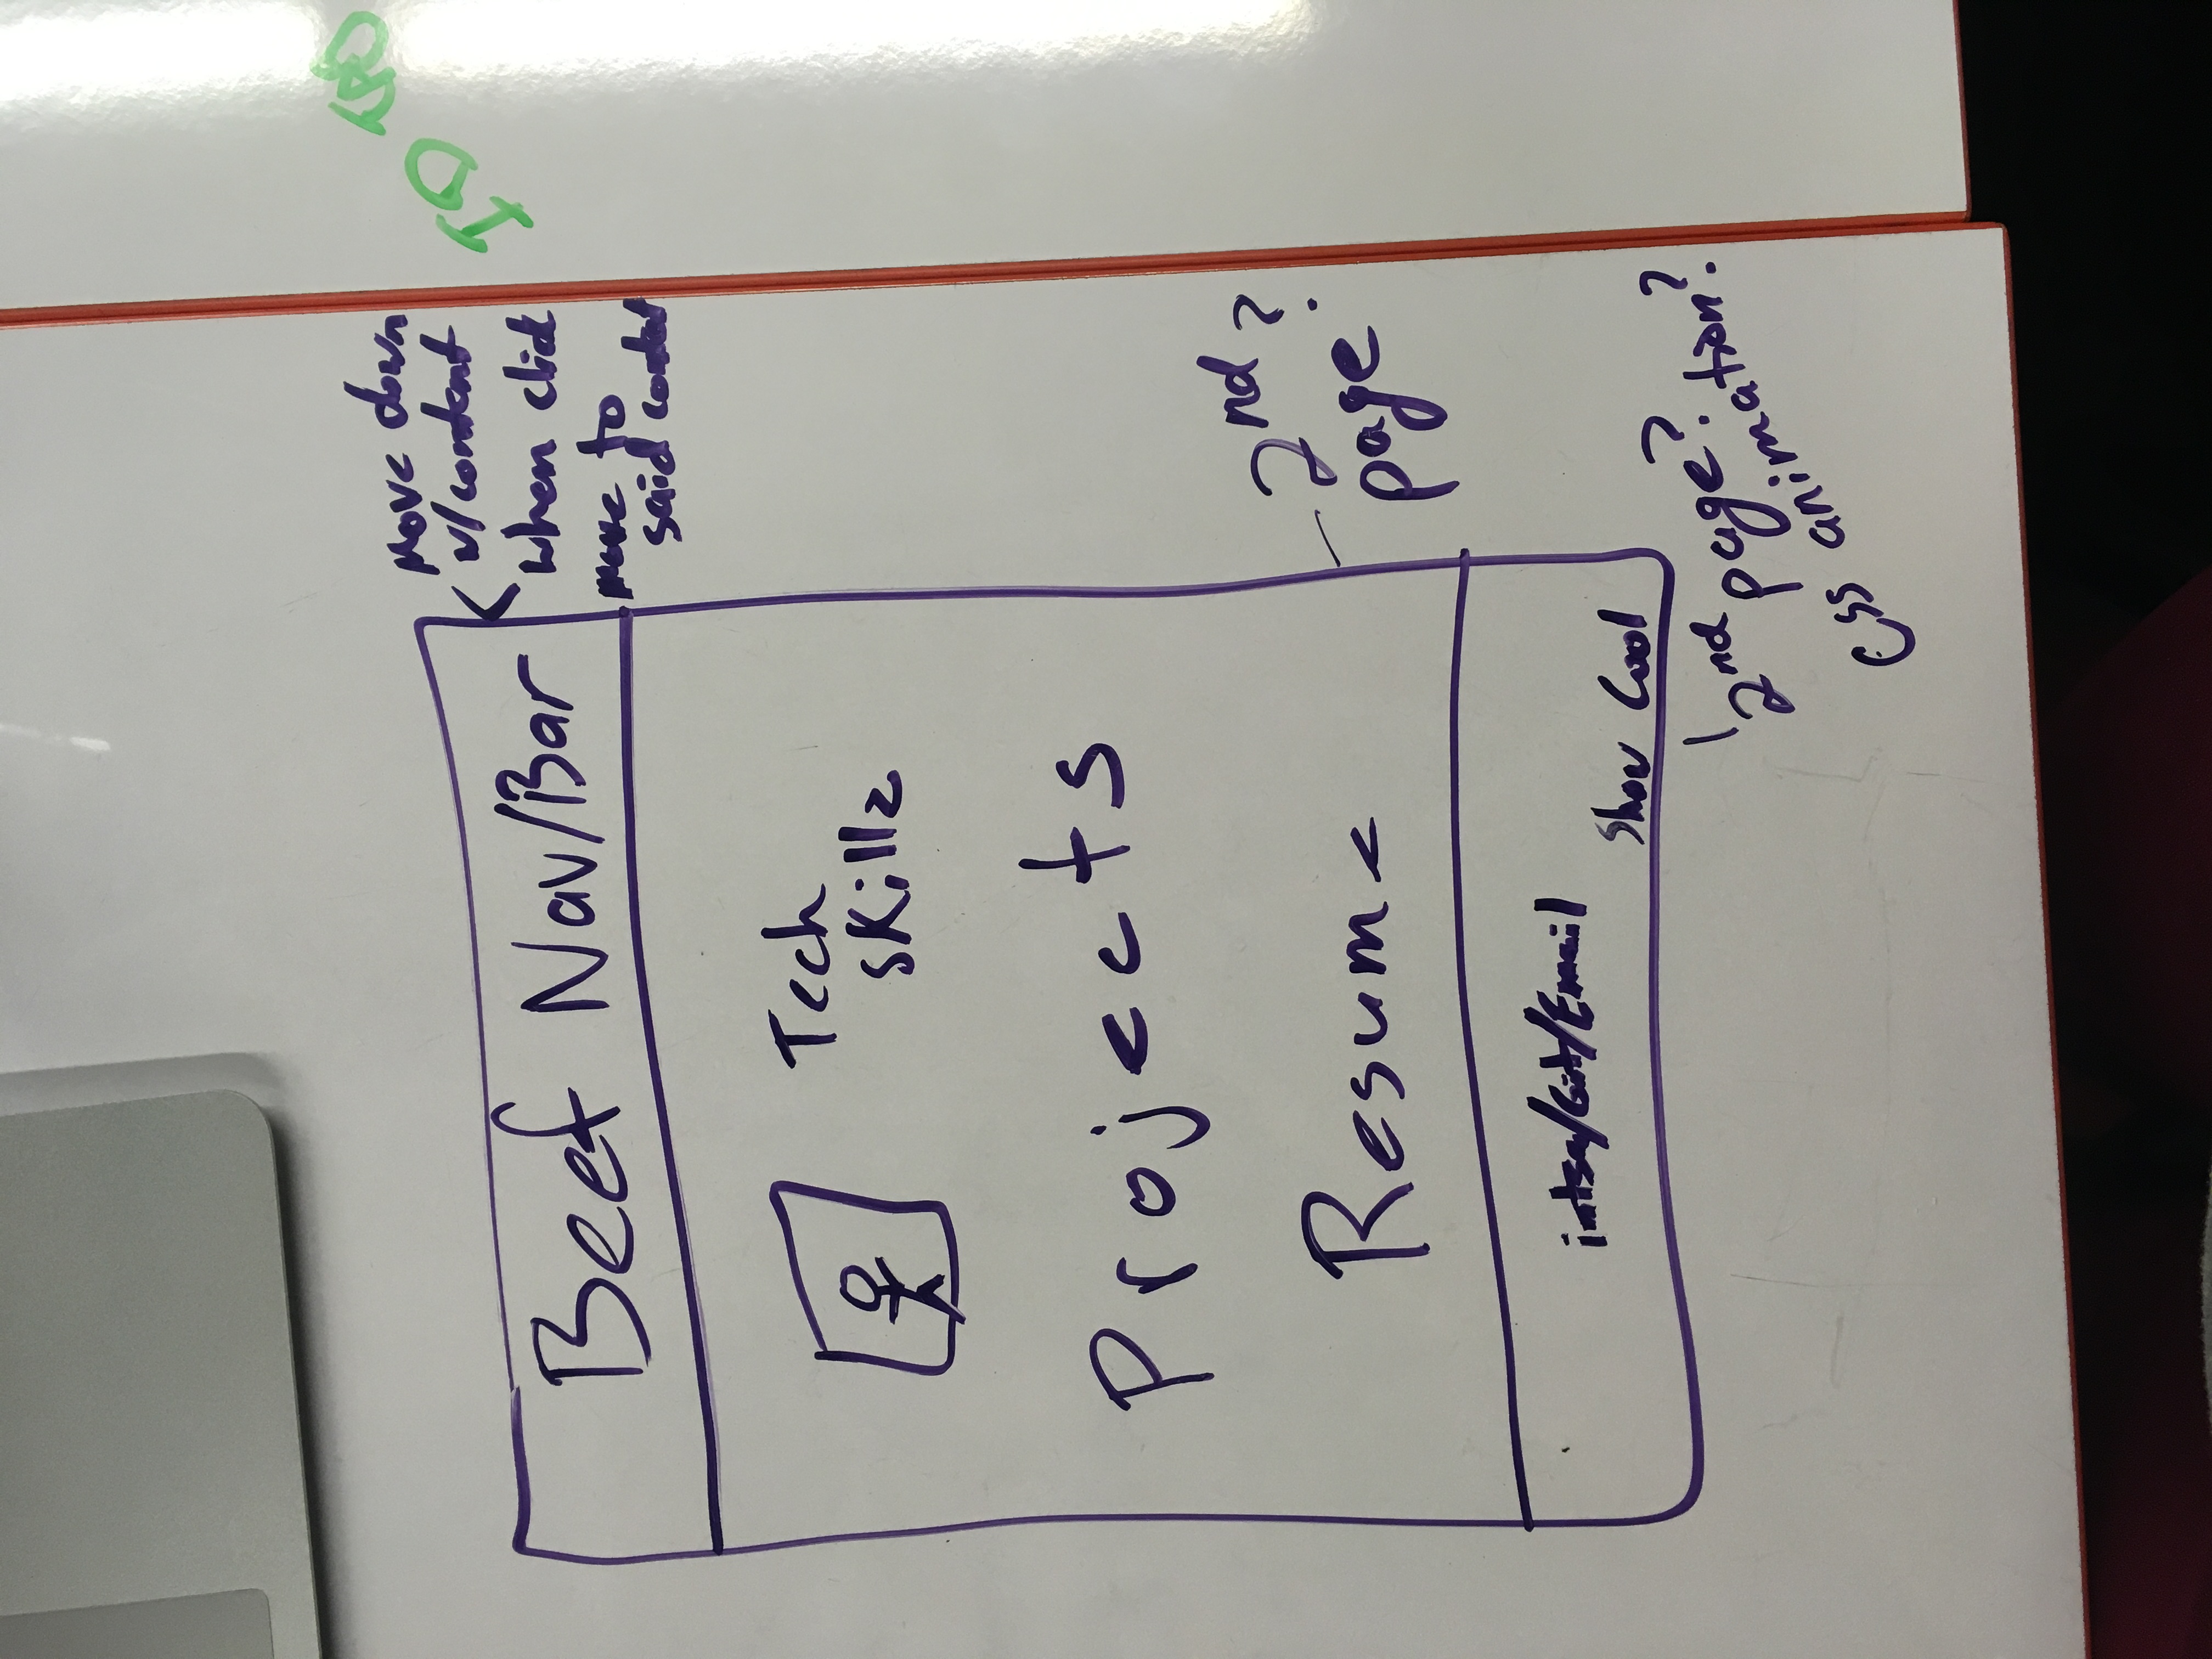 Move down
w/content
when click
move to
said content
Beef Nav/Bar
Tech
Skillz
Projects
Resume
2nd
page?
intsa/Git/Email
Show Cool
2nd page?
css animation?
ID